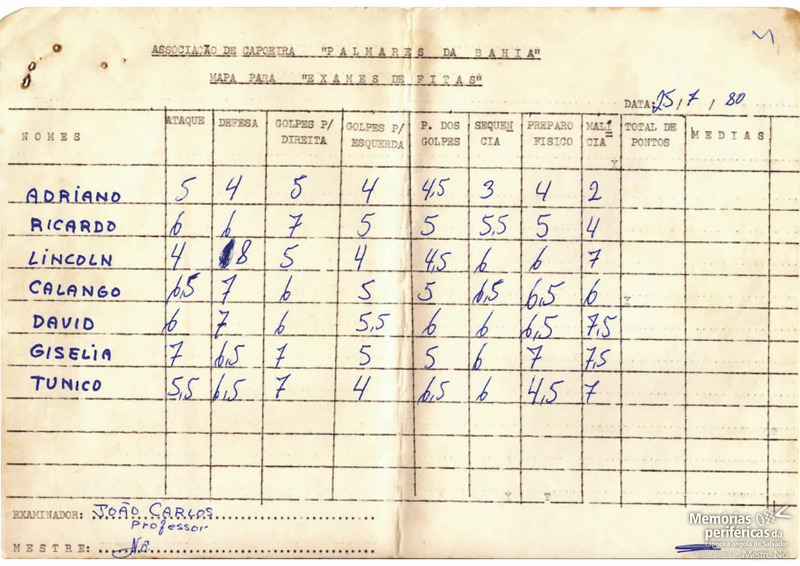 ASSOCIAÇÃO DE CAPOEIRA "PALMARES DA BAHIA"
MAPA PARA "EXAMES DE FITAS"
DATA: 25 / 7 / 80
NOMES ATAQUE DEFESA GOLPES P/ DIREITA GOLPES P/ ESQUERDA P. DOS GOLPES SEQUEN CIA PREPARO FISICO MALÍ CIA TOTAL DE PONTOS MEDIAS
ADRIANO 5 4 5 4 4,5 3 4 2
RICARDO 6 6 7 5 5 5,5 5 4
LINCOLN 4 8 5 4 4,5 6 6 7
CALANGO 6,5 7 6 5 5 6,5 6,5 6
DAVID 6 7 6 5,5 6 6 6,5 7,5
GISELIA 7 6,5 7 5 5 6 7 7,5
TUNICO 5,5 6,5 7 4 6,5 6 4,5 7
EXAMINADOR: JOÃO CARLOS
Professor
MESTRE: Nô
Memórias
periféricas da
capoeira angola de Salvador
Mestre Nô